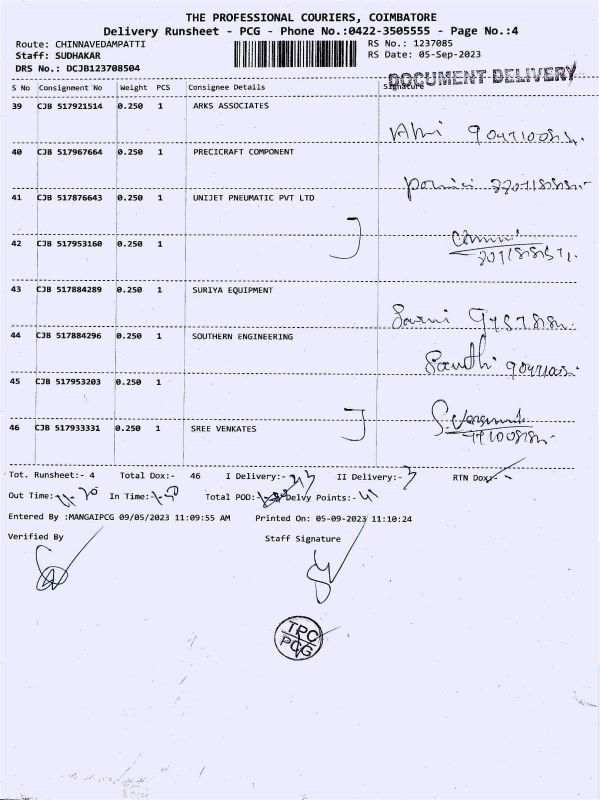 THE PROFESSIONAL COURIERS, COIMBATORE
Delivery Runsheet - PCG - Phone No.:0422-3505555 - Page No.:4
Route: CHINNAVEDAMPATTI RS No.: 1237085
Staff: SUDHAKAR RS Date: 05-Sep-2023
DRS No.: DCJB123708504
DOCUMENT DELIVERY
S No Consignment No Weight PCS Consignee Details Signature
39 CJB 517921514 0.250 1 ARKS ASSOCIATES
40 CJB 517967664 0.250 1 PRECICRAFT COMPONENT
41 CJB 517876643 0.250 1 UNIJET PNEUMATIC PVT LTD
42 CJB 517953160 0.250 1
43 CJB 517884289 0.250 1 SURIYA EQUIPMENT
44 CJB 517884296 0.250 1 SOUTHERN ENGINEERING
45 CJB 517953203 0.250 1
46 CJB 517933331 0.250 1 SREE VENKATES
Tot. Runsheet:- 4 Total Dox:- 46 I Delivery:- II Delivery:- 3 RTN Dox:-
Out Time: In Time: Total POD: Delvy Points:-
Entered By :MANGAIPCG 09/05/2023 11:09:55 AM Printed On: 05-09-2023 11:10:24
Verified By Staff Signature
TPC
PCG